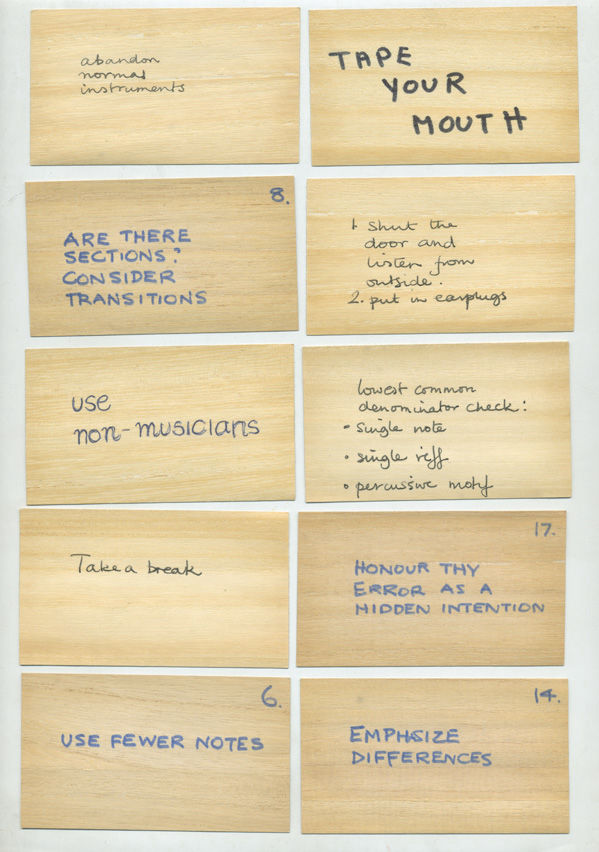 abandon
normal
instruments
TAPE
YOUR
MOUTH
8.
ARE THERE
SECTIONS?
CONSIDER
TRANSITIONS
1. Shut the
door and
listen from
outside.
2. put in earplugs
use
non-musicians
lowest common
denominator check:
• single note
• single riff
• percussive motif
Take a break
17.
HONOUR THY
ERROR AS A
HIDDEN INTENTION
6.
USE FEWER NOTES
14.
EMPHASIZE
DIFFERENCES